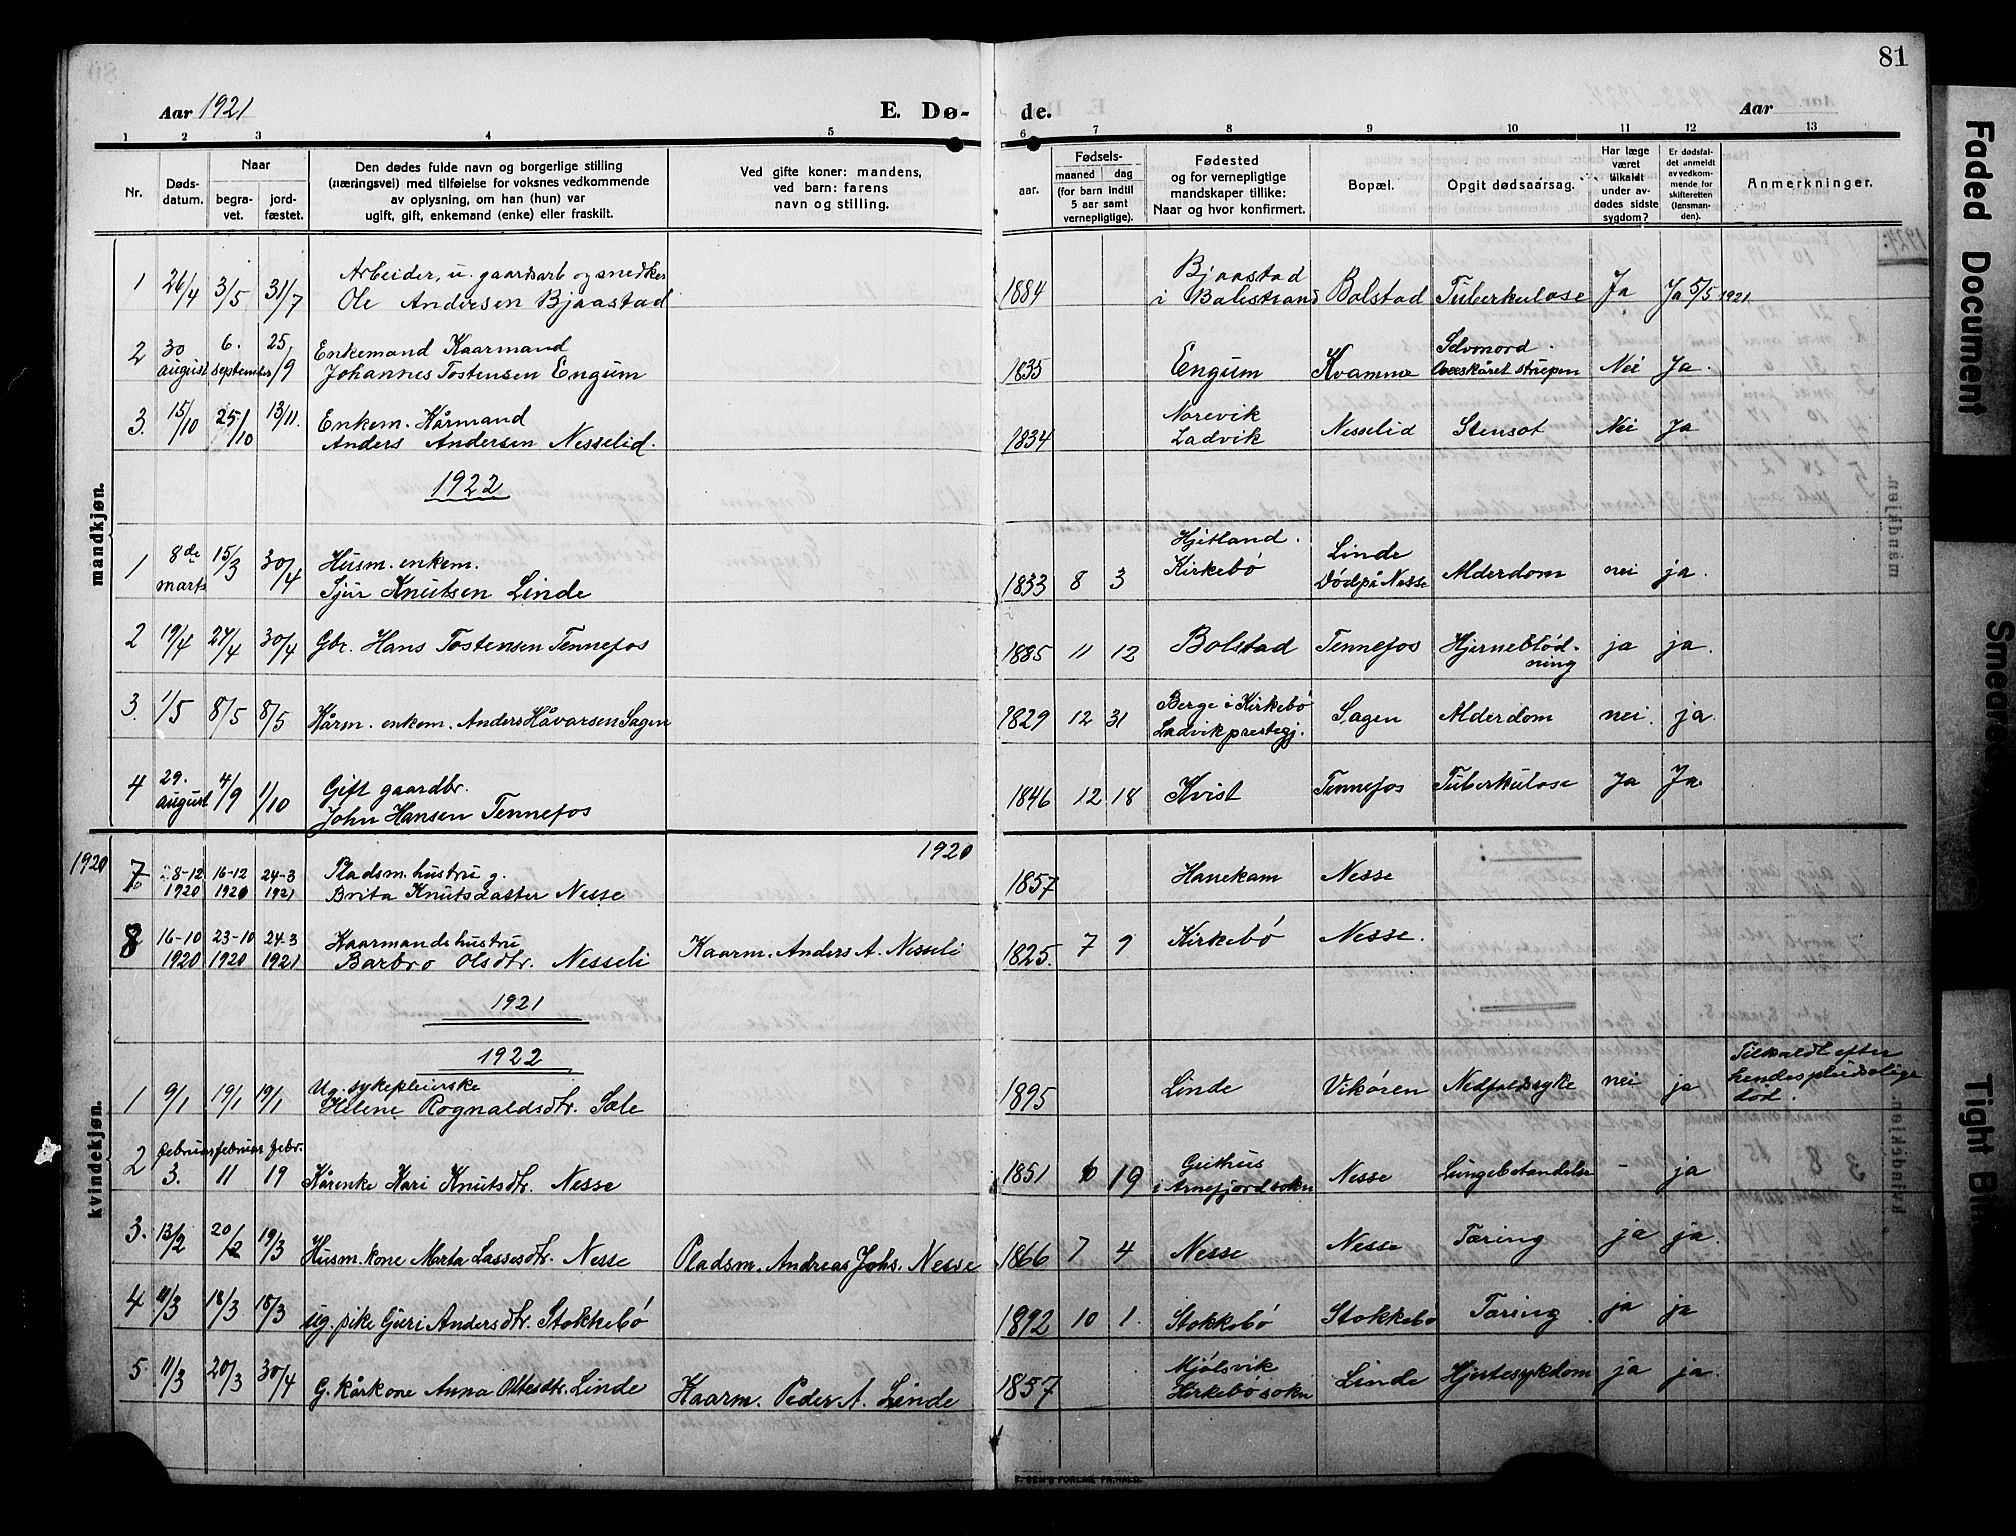 81
Aar 1921 E. Dø- de. Aar
1 2 3 4 5 6 7 8 9 10 11 12 13
Nr.
Døds-
datum.
Naar
begra-
vet.
jord-
fæstet.
Den dødes fulde navn og borgerlige stilling
(næringsvei) med tilføielse for voksnes vedkommende
av oplysning, om han (hun) var
ugift, gift, enkemand (enke) eller fraskilt.
Ved gifte koner: mandens,
ved barn: farens
navn og stilling.
Fødsels-
aar.
maaned dag
(for barn indtil
5 aar samt
vernepligtige).
Fødested
og for vernepligtige
mandskaper tillike:
Naar og hvor konfirmert.
Bopæl.
Opgit dødsaarsag.
Har læge
været
tilkaldt
under av-
dødes sidste
sygdom?
Er dødsfal-
det anmeldt
av vedkom-
mende for
skifteretten
(lensman-
den).
Anmerkninger.
mandkjøn.
1 26/4 3/5 31/7 Arbeider, u. gaardsarb og snedker
Ole Andersen Bjaastad 1884 Bjaastad
i Balestrand Bolstad Tuberkulose Ja Ja 5/5 1921
2 30 august 6. september 25/9 Enkemand Kaarmand
Johannes Tostensen Engum 1835 Engum Kvamme Selvmord.
Overskåret strupen Nei Ja.
3. 15/10 25/10 13/11. Enkem. Kårmand
Anders Andersen Nesselid. 1834 Norevik
Ladvik Nesselid Stensot Nei Ja
1922
1 8de marts 15/3 30/4 Husm. enkem.
Sjur Knutsen Linde 1833 8 3 Hjetland.
Kirkebö Linde
Död på Nesse Alderdom nei ja.
2 19/4 27/4 30/4 Gbr. Hans Tostensen Tennefos 1885 11 12 Bolstad Tennefos Hjerneblöd-
ning ja ja.
3. 1/5 8/5 8/5 Kårm. enkem. Anders Håvarsen Sagen 1829 12 31 Berge i Kirkebö
Ladvik prestegj. Sagen Alderdom nei. ja.
4 29. august 4/9 1/10 Gift gaardbr.
John Hansen Tennefos 1846 12 18 Kvist Tennefos Tuberkulose Ja Ja.
kvindekjøn.
1920 1920
7 8-12 1920 16-12 1920 24-3 1921 Pladsm. hustru g.
Brita Knutsdatter Nesse 1857 Hanekam Nesse
8 16-10 1920 23-10 1920 24-3 1921 Kaarmandshustru
Barbro Olsdtr. Nesseli Kaarm. Anders A. Nesseli 1825. 7 9 Kirkebö Nesse.
1921
1922
1 9/1 19/1 19/1 Ug. sykepleierske
Helene Rognaldsdtr. Sæle 1895 Linde Vikören Nedfaldssyke nei ja Tilkaldt efter
hendes pludselige
död.
2 februar 3. februar 11 febr. 19 Kårenke Kari Knutsdtr. Nesse 1851 6 19 Geithus
i Arnefjord sokn Nesse Lungebetændelse - ja
3. 13/2 20/2 19/3 Husm. kone Marta Lassesdtr. Nesse Pladsm. Andreas Johs. Nesse 1866 7 4 Nesse Nesse Tæring ja ja.
4 11/3 18/3 18/3 ug. pike Guri Andersdtr. Stokkebö 1892 10 1. Stokkebö Stokkebö Tæring ja ja
5. 11/3 20/3 30/4 G. kårkone Anna Ottesdtr. Linde Kaarm. Peder A. Linde 1857 Mjölsvik
Kirkebö sokn Linde Hjertesykdom ja ja.
F. BEYER FORLAG
Faded Document
Smeared
Tight Bin